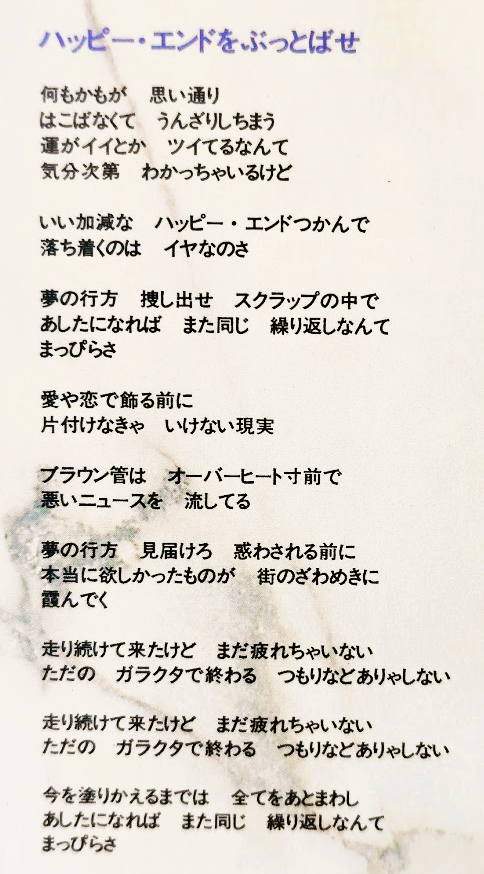 ハッピー・エンドをぶっとばせ
何もかもが　思い通り
はこばなくて　うんざりしちまう
運がイイとか　ツイてるなんて
気分次第　わかっちゃいるけど
いい加減な　ハッピー・エンドつかんで
落ち着くのは　イヤなのさ
夢の行方　捜し出せ　スクラップの中で
あしたになれば　また同じ　繰り返しなんて
まっぴらさ
愛や恋で飾る前に
片付けなきゃ　いけない現実
ブラウン管は　オーバーヒート寸前で
悪いニュースを　流してる
夢の行方　見届けろ　惑わされる前に
本当に欲しかったものが　街のざわめきに
霞んでく
走り続けて来たけど　まだ疲れちゃいない
ただの　ガラクタで終わる　つもりなどありゃしない
走り続けて来たけど　まだ疲れちゃいない
ただの　ガラクタで終わる　つもりなどありゃしない
今を塗りかえるまでは　全てをあとまわし
あしたになれば　また同じ　繰り返しなんて
まっぴらさ